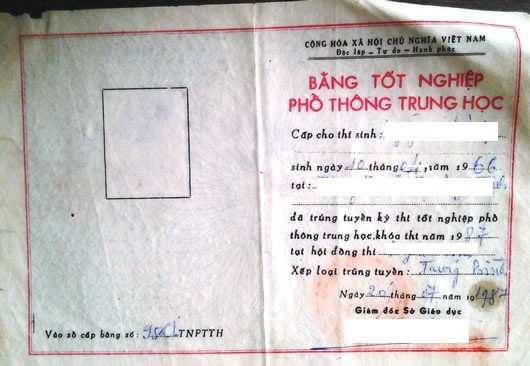 CỘNG HÒA XÃ HỘI CHỦ NGHĨA VIỆT NAM
Độc lập - Tự do - Hạnh phúc
BẰNG TỐT NGHIỆP
PHỔ THÔNG TRUNG HỌC
Cấp cho thí sinh :
sinh ngày 10 tháng năm 1966
tại :
đã trúng tuyển kỳ thi tốt nghiệp phổ
thông trung học, khóa thi năm 1987
tại hội đồng thi
Xếp loại trúng tuyển : Trung Bình
Ngày 20 tháng 07 năm 1987
Giám đốc Sở Giáo dục
Vào sổ cấp bằng số : TNPTTH